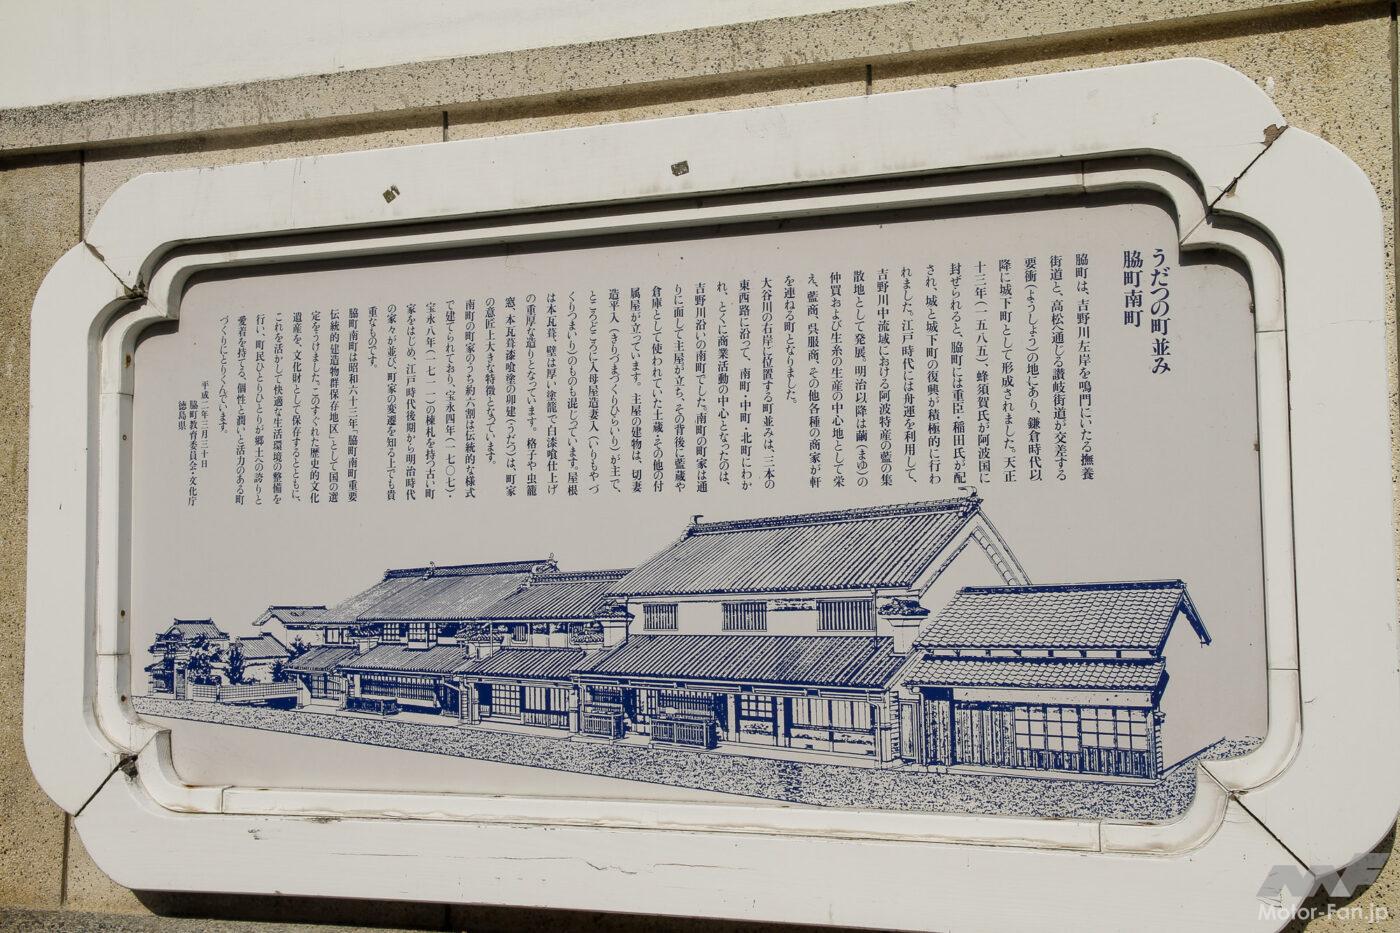 うだつの町並み
脇町南町
脇町は、吉野川左岸を鳴門にいたる撫養
街道と、高松へ通じる讃岐街道が交差する
要衝(ようしょう)の地にあり、鎌倉時代以
降に城下町として形成されました。天正
十三年(一五八五)、蜂須賀氏が阿波国に
封ぜられると、脇町には重臣・稲田氏が配
され、城と城下町の復興が積極的に行わ
れました。江戸時代には舟運を利用して、
吉野川中流域における阿波特産の藍の集
散地として発展、明治以降は繭(まゆ)の
仲買および生糸の生産の中心地として栄
え、藍商、呉服商、その他各種の商家が軒
を連ねる町となりました。
大谷川の右岸に位置する町並みは、三本の
東西路に沿って、南町・中町・北町にわか
れ、とくに商業活動の中心となったのは、
吉野川沿いの南町でした。南町の町家は通
りに面して主屋が立ち、その背後に藍蔵や
倉庫として使われていた土蔵・その他の付
属屋が立っています。主屋の建物は、切妻
造平入(きりづまづくりひらいり)が主で、
ところどころに入母屋造妻入(いりもやづ
くりつまいり)のものも混じっています。屋根
は本瓦葺、壁は厚い塗籠で白漆喰仕上げ
の重厚な造りとなっています。格子や虫籠
窓、本瓦葺漆喰塗の卯建(うだつ)は、町家
の意匠上大きな特徴となっています。
南町の町家のうち約六割は伝統的な様式
で建てられており、宝永四年(一七〇七)・
宝永八年(一七一一)の棟札を持つ古い町
家をはじめ、江戸時代後期から明治時代
の家々が並び、町家の変遷を知る上でも貴
重なものです。
脇町南町は昭和六十三年「脇町南町重要
伝統的建造物群保存地区」として国の選
定をうけました。このすぐれた歴史的文化
遺産を、文化財として保存するとともに、
これを活かして快適な生活環境の整備を
行い、町民ひとりひとりが郷土への誇りと
愛着を持てる、個性と潤いと活力のある町
づくりにとりくんでいます。
平成二年三月三十日
脇町教育委員会・文化庁
徳島県
Motor-Fan.jp